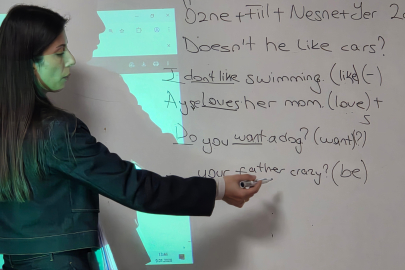 Özne + Fiil + Nesne + Yer
Doesn't he like cars?
I don't like swimming. (like) (-)
Ayşe Loves her mom. (love) +
s
Do you want a dog? (want) (?)
your father crazy? (be)